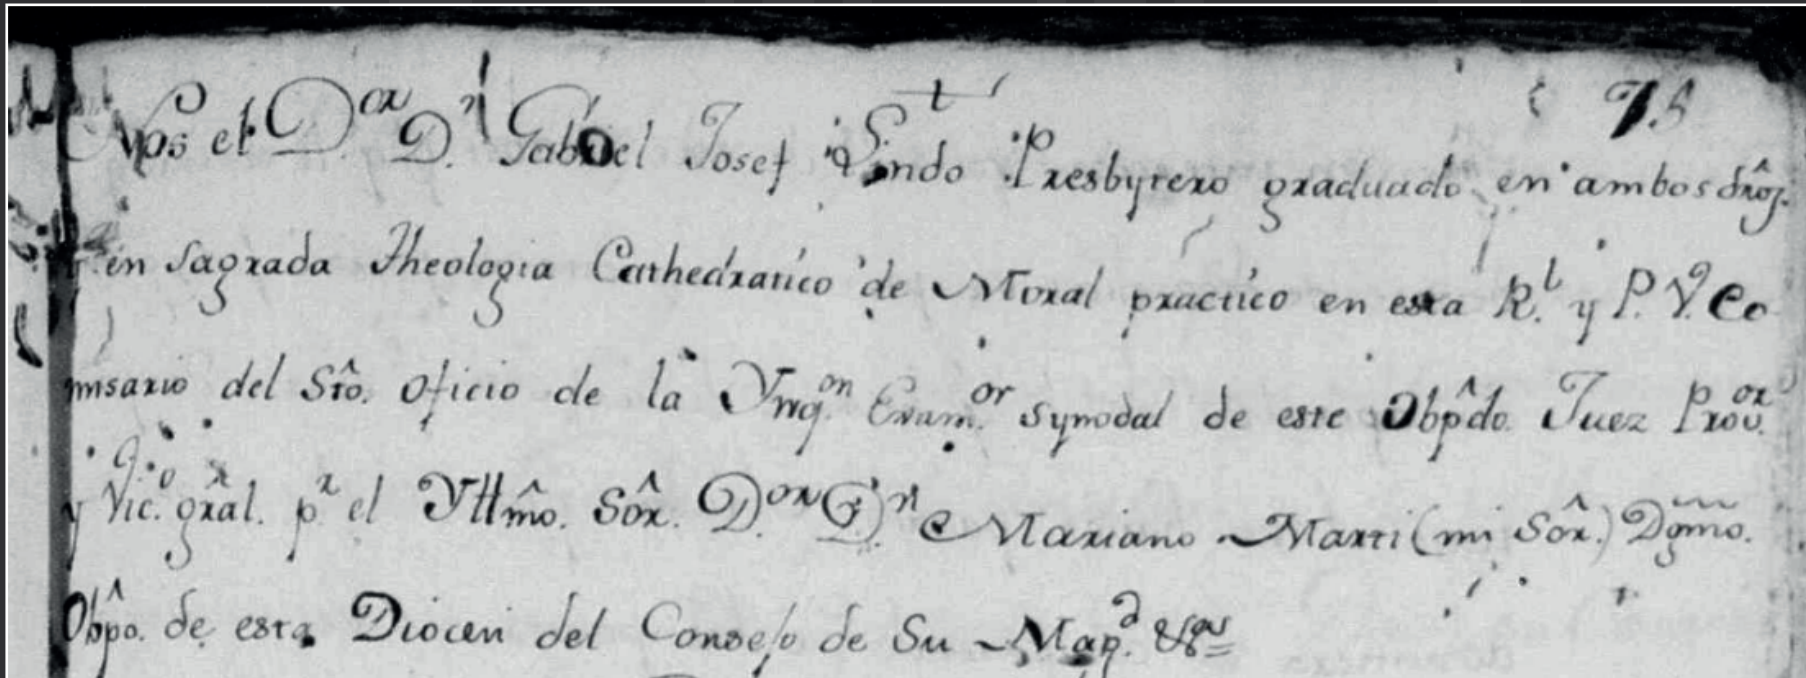 75
Nos el D.or D.n Gabriel Josef Lindo Presbytero graduado en ambos drôs.
y en Sagrada Theologia Cathedratico de Moral practico en esta R.l y P. V.d Co
misario del Sto. Oficio de la Ynq.on Exam.or Synodal de este Obpdo. Juez Prov.or
y Vic.o gral. p.r el Yllmo. Sôr. D.or D.n Mariano Marti (mi Sôr.) Dgmo.
Obpo. de esta Diocesi del Consejo de Su Mag.d &.a